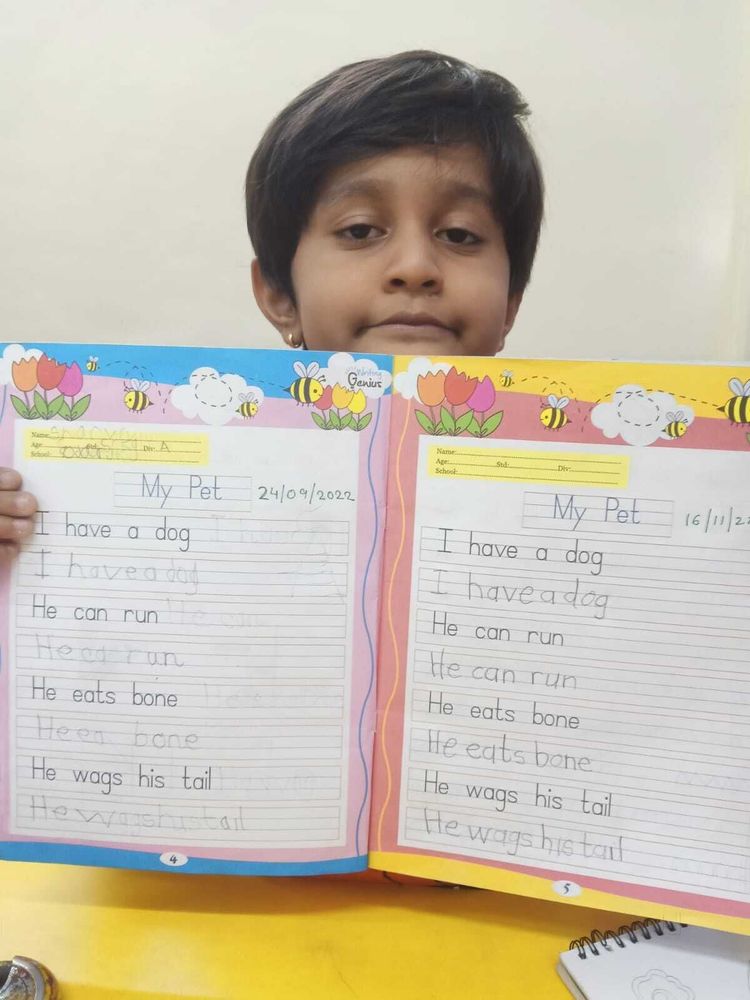 Writing
Genius
Name:
Age: Std: Div: A
School:
My Pet 24/09/2022
I have a dog
I have a dog
He can run
He can run
He eats bone
He ea bone
He wags his tail
He wags his tail
4
Name:
Age: Std: Div:
School:
My Pet 16/11/22
I have a dog
I have a dog
He can run
He can run
He eats bone
He eats bone
He wags his tail
He wags his tail
5